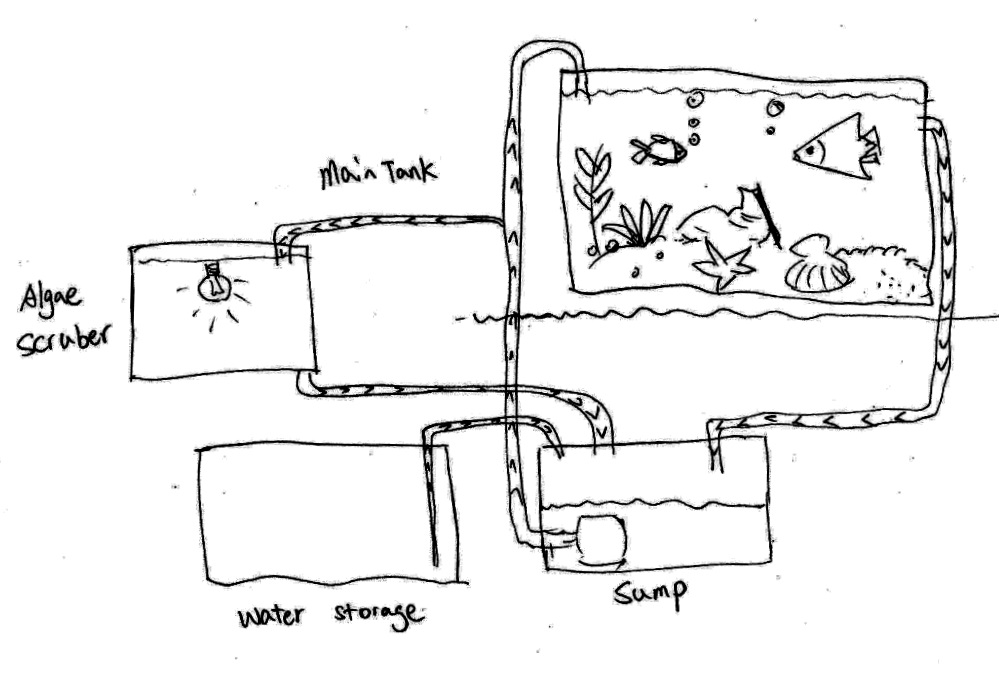 Main Tank
Algae
scruber
Water storage
Sump